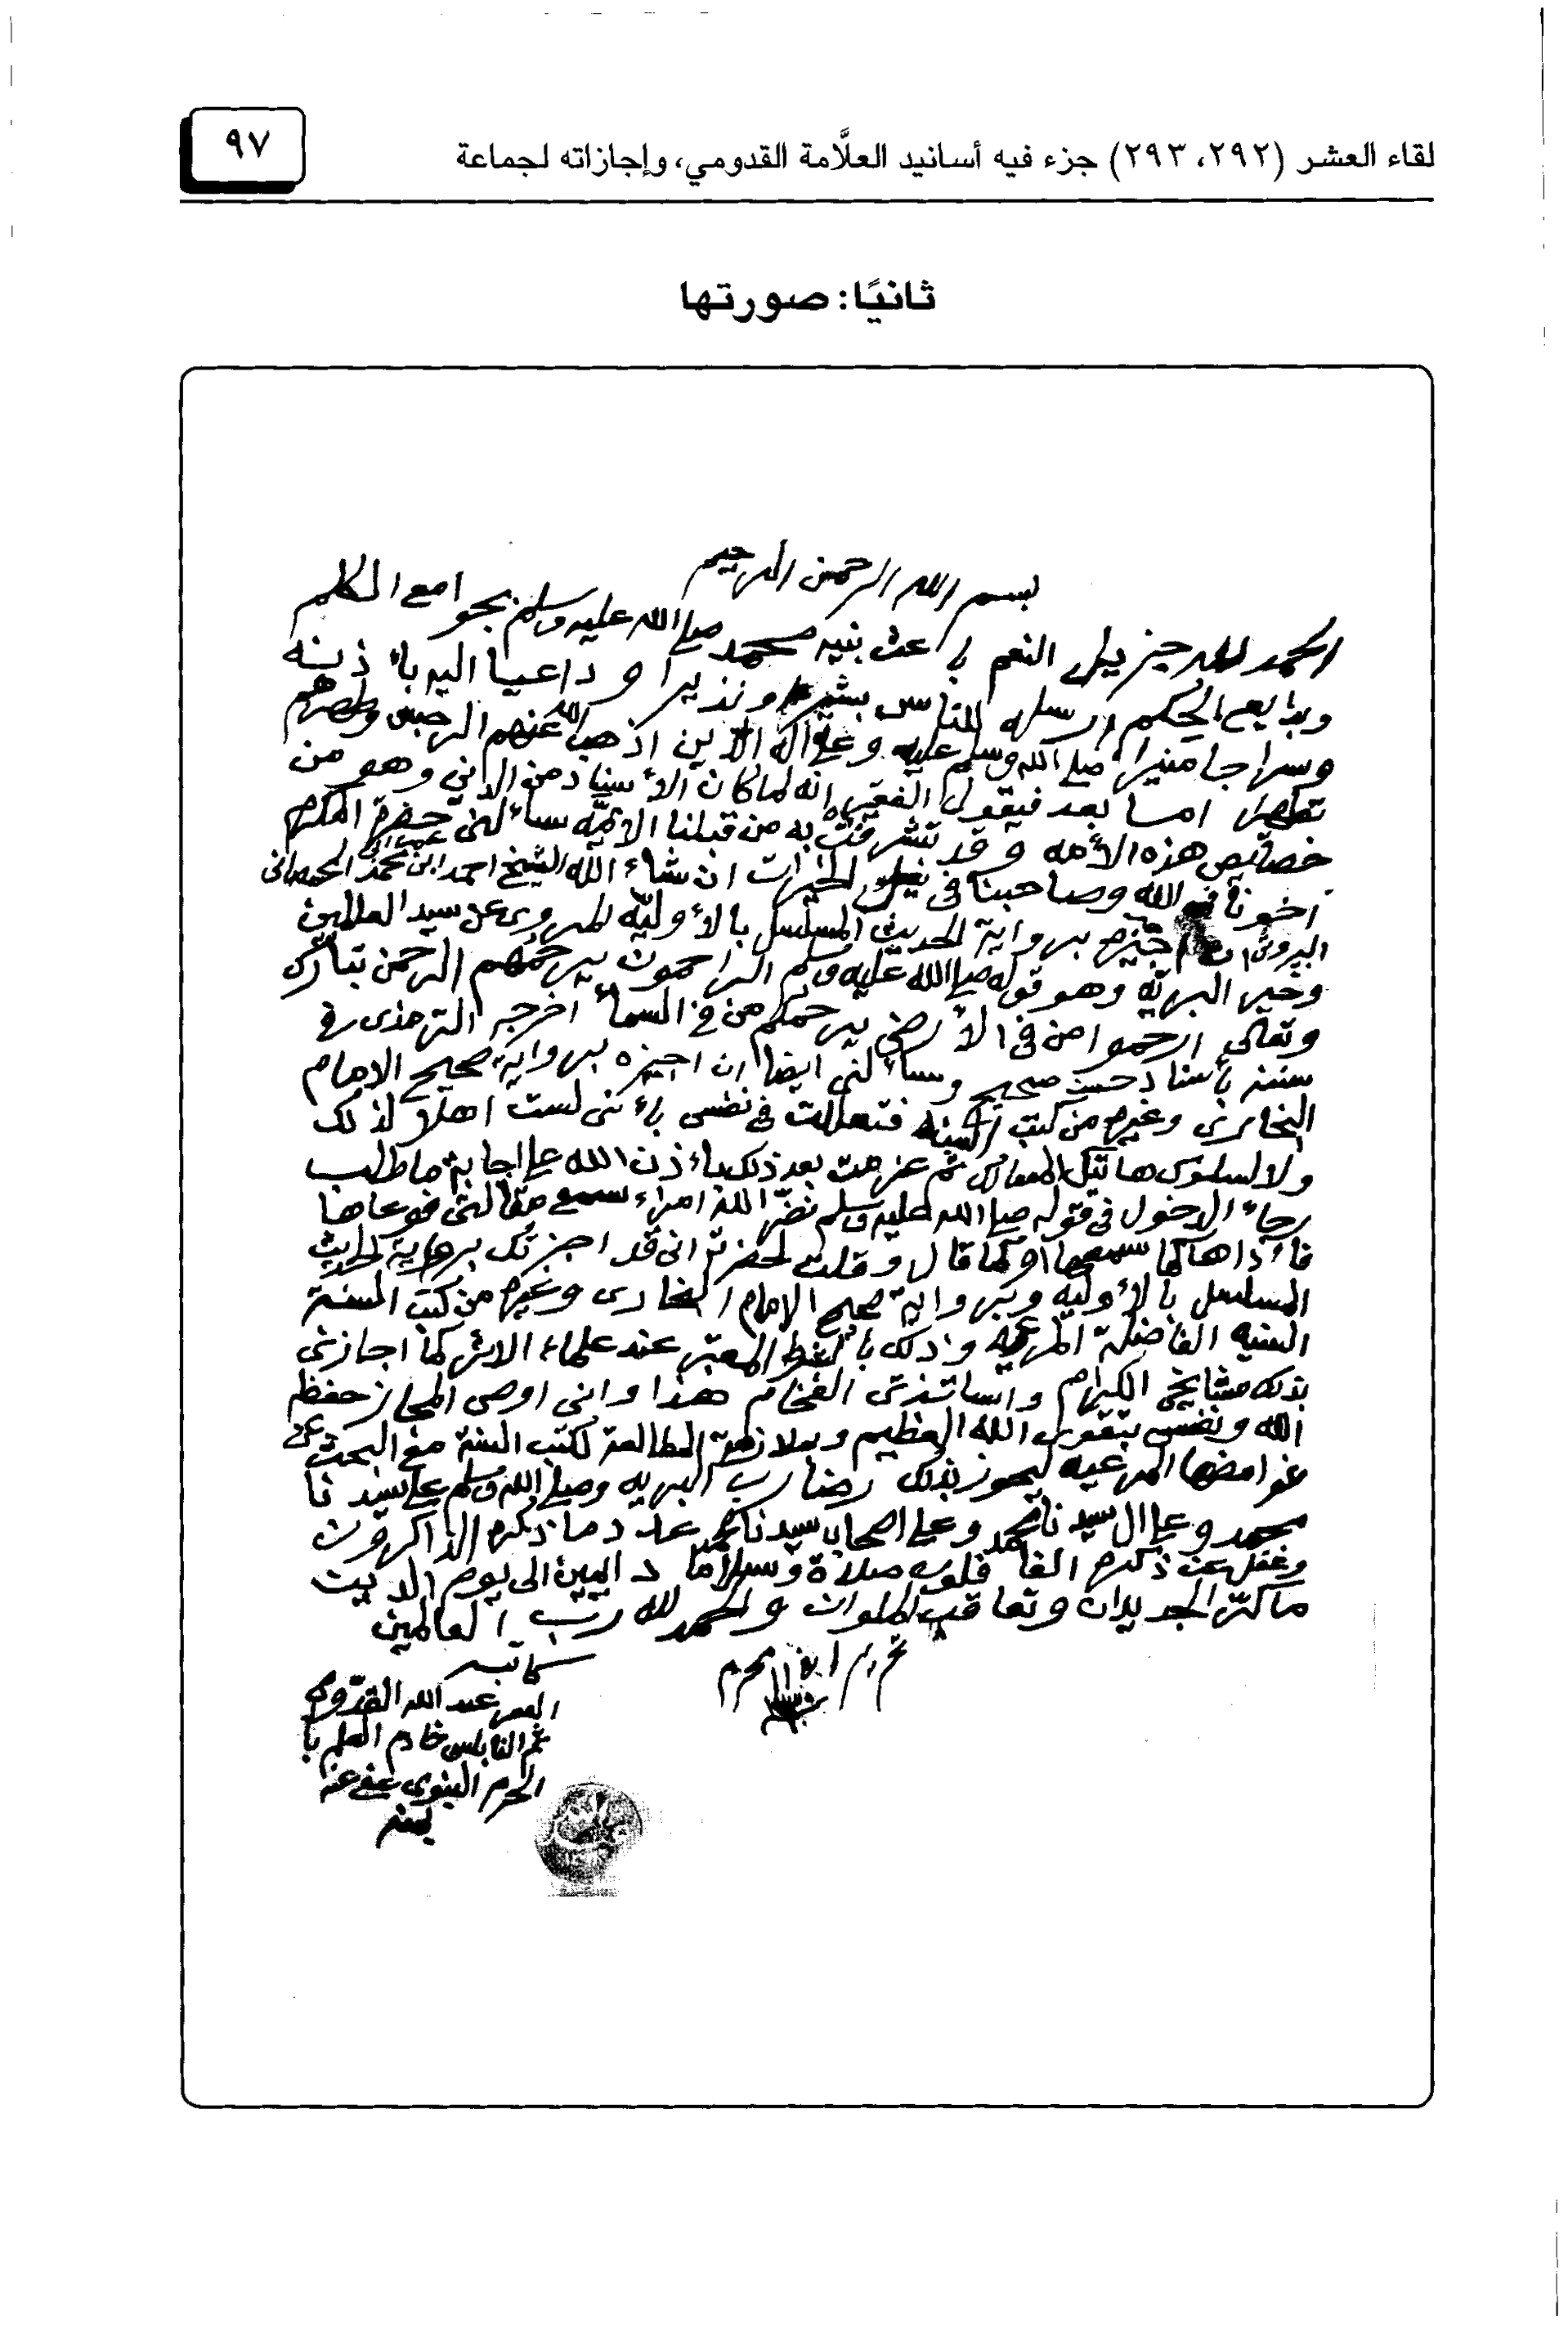 لقاء العشر (٢٩٢، ٢٩٣) جزء فيه أسانيد العلَّامة القدومي، وإجازاته لجماعة
٩٧
ثانيًا: صورتها
بسم الله الرحمن الرحيم
الحمد لله جزيل النعم باعث نبيه محمد صلى الله عليه وسلم بجوامع الكلم
وبدايع الحكم ارسله للناس بشيرا ونذيرا وداعيا اليه باذنه
وسراجا منيرا صلى الله وسلم عليه وعلى آله الذين اذهب الله عنهم الرجس وطهرهم
تطهيرا اما بعد فيقول الفقير انه لما كان الأسناد من الدين وهو من
خصائص هذه الأمه وقد تشرفت به من قبلنا الائمّه سألني حضرة المكرم
اخونا في الله وصاحبنا في نيل الخيرات ان شاء الله الشيخ احمد ابن محمد المحمصاني
البيروتي ان اجيزه برواية الحديث المسلسل بالأوليّه المروي عن سيد العالمين
وخير البريّه وهو قوله صلى الله عليه وسلم الراحمون يرحمهم الرحمن تبارك
وتعالى ارحموا من في الأرض يرحمكم من في السماء اخرجه الترمذي في
سننه بأسناد حسن صحيح وسألني ايضا ان اجيزه برواية صحيح الامام
البخاري وغيره من كتب السنه فتعللت في نفسي بأنني لست اهلا لذلك
ولا لسلوك هاتيك المسالك ثم عزمت بعد ذلك بأذن الله على اجابة ما طلب
رجاء الدخول في قوله صلى الله عليه وسلم نضّر الله امراء سمع مقالتي فوعاها
فأداها كما سمعها او كما قال وقلت لحضرته اني قد اجزتك برواية الحديث
المسلسل بالأوليه وبرواية صحيح الامام البخاري وغيره من كتب السنة
السنيه الفاضلة المرعيه وذلك بالشرط المعتبر عند علماء الاثر كما اجازني
بذلك مشايخي الكرام واساتذتي الفخام هذا واني اوصي المجاز حفظه
الله ونفسي بتقوى الله العظيم وبملازمة المطالعة لكتب السنة مع البحث عن
غوامضها المرعيه ليحوز بذلك رضا رب البريه وصلى الله وسلم على سيدنا
محمد وعلى ال سيدنا محمد وعلى اصحاب سيدنا محمد عدد ما ذكره الذاكرون
وغفل عن ذكره الغافلون صلاة وسلاما دايمين الى يوم الدين
ما كرّ الجديدان وتعاقب الملوان والحمد لله رب العالمين
تحريرا في ١١ محرم
كاتبه
الفقير عبد الله القدّومي
ثم النابلسي خادم العلم با
الحرم النبوي عفي عنه
بمنه